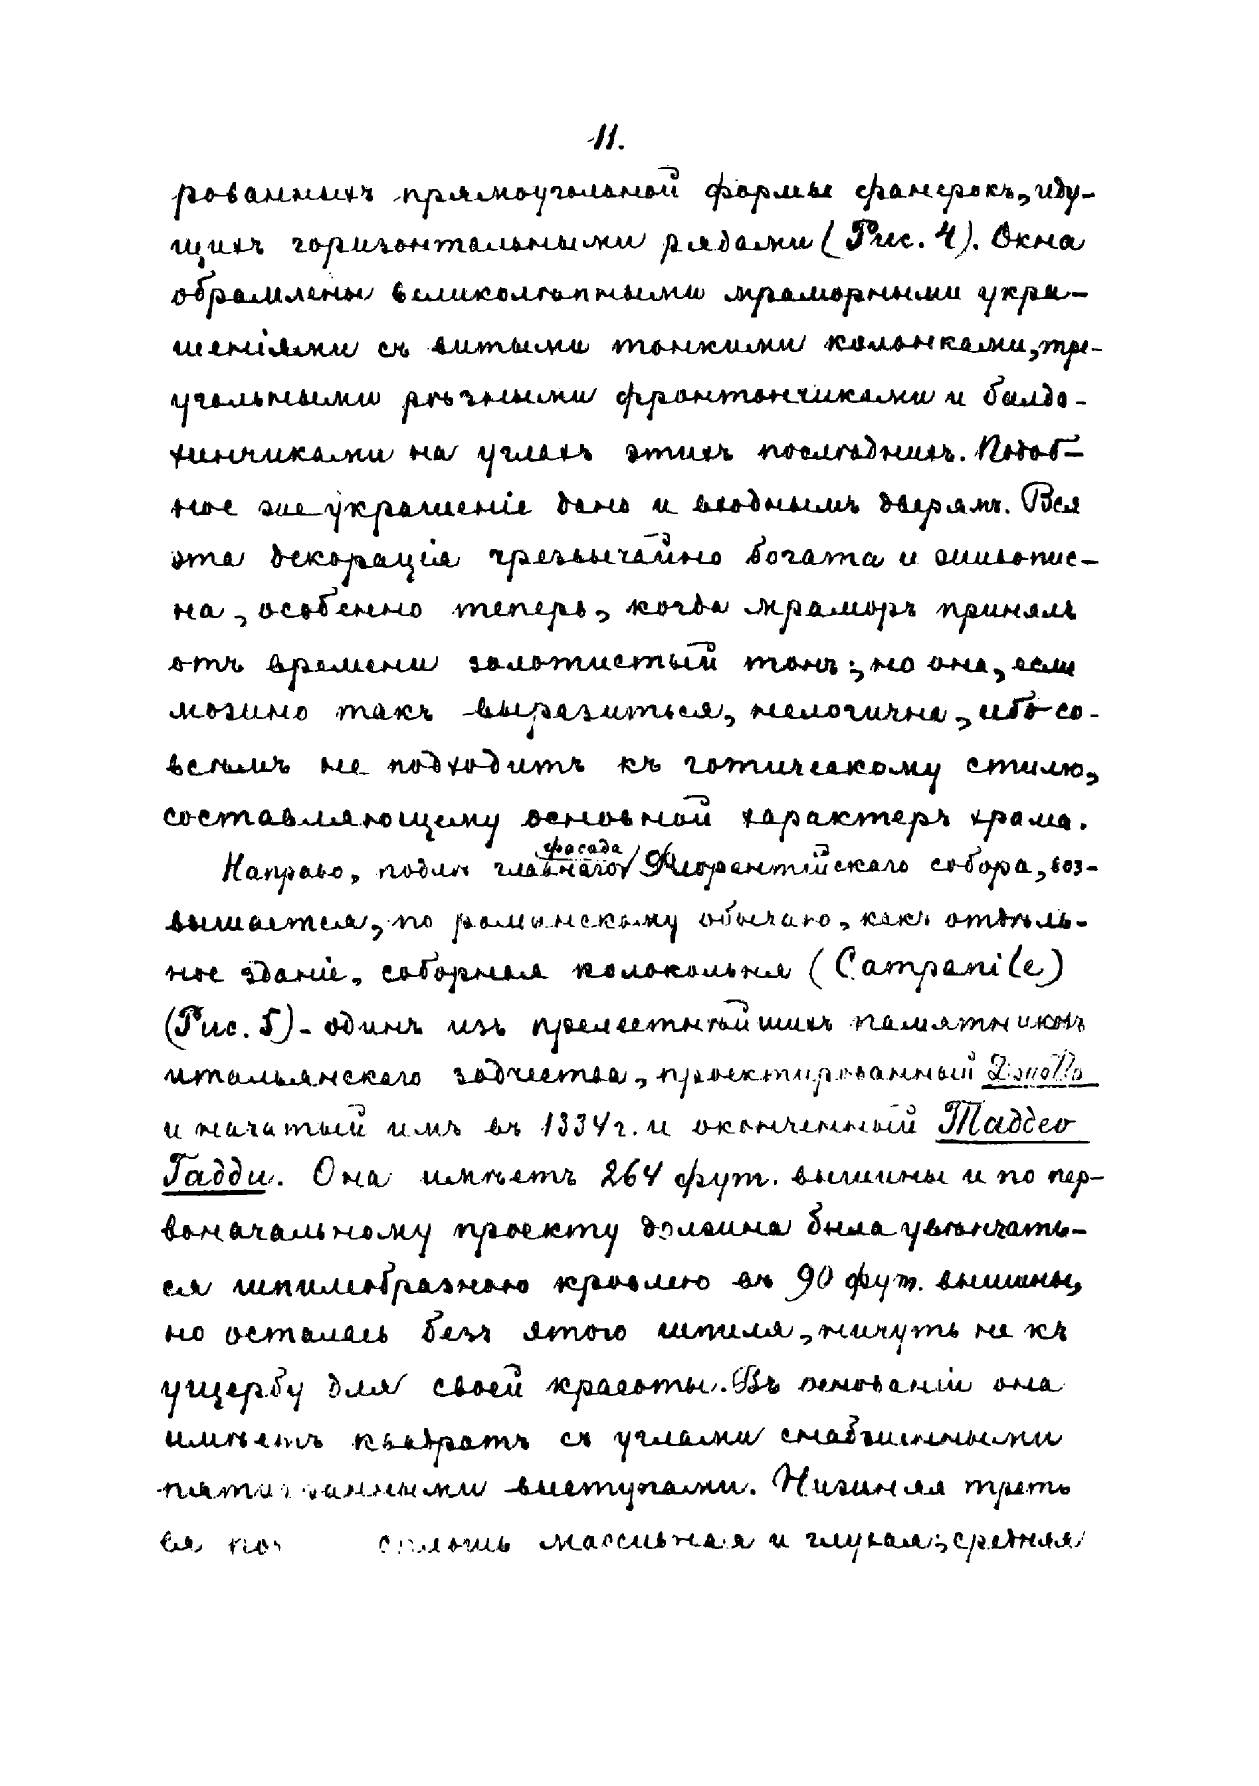 11.
рованныхъ прямоугольной формы фанерокъ, иду-
щихъ горизонтальными рядами (Рис. 4). Окна
обрамлены великолѣпными мраморными укра-
шеніями съ витыми тонкими колонками, тре-
угольными рѣзными фронтончиками и балда-
хинчиками на углахъ этихъ послѣднихъ. Подоб-
ное же украшеніе дано и входнымъ дверямъ. Вся
эта декорація чрезвычайно богата и живопис-
на, особенно теперь, когда мраморъ принялъ
отъ времени золотистый тонъ; но она, если
можно такъ выразиться, нелогична, ибо со-
всѣмъ не подходитъ къ готическому стилю,
составляющему основной характеръ храма.
Направо, подлѣ главнаго фасада Флорентійскаго собора, воз-
вышается, по романскому обычаю, какъ отдѣль-
ное зданіе, соборная колокольня (Campanile)
(Рис. 5) - одинъ изъ прелестнѣйшихъ памятниковъ
итальянскаго зодчества, проектированный Джотто
и начатый имъ въ 1334 г. и оконченный Таддео
Гадди. Она имѣетъ 264 фут. вышины и по пер-
воначальному проекту должна была увѣнчать-
ся шпилеобразною кровлею въ 90 фут. вышины,
но осталась безъ этого шпиля, ничуть не къ
ущербу для своей красоты. Въ основаніи она
имѣетъ квадратъ съ углами снабженными
пятигранными выступами. Нижняя треть
ея сплошь массивная и глухая; средняя